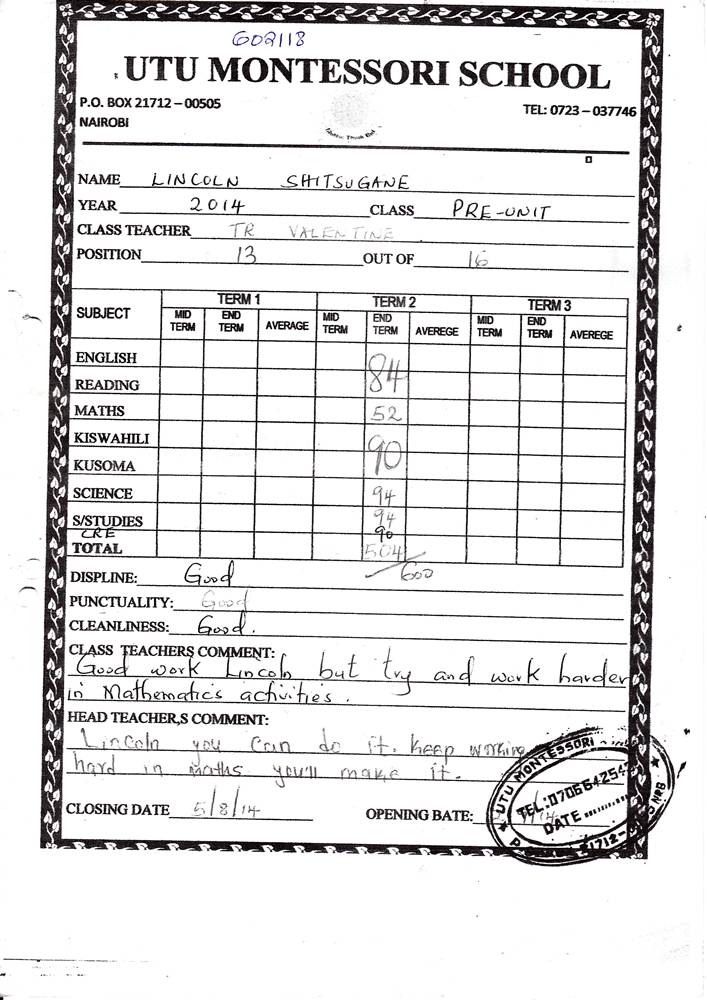 602118
UTU MONTESSORI SCHOOL
P.O. BOX 21712 – 00505
TEL: 0723 – 037746
NAIROBI
NAME LINCOLN SHITSUGANE
YEAR 2014 CLASS PRE-UNIT
CLASS TEACHER TR VALENTINE
POSITION 13 OUT OF 16
SUBJECT TERM 1 TERM 2 TERM 3
MID TERM END TERM AVERAGE MID TERM END TERM AVEREGE MID TERM END TERM AVEREGE
ENGLISH
READING 84
MATHS 52
KISWAHILI
KUSOMA 90
SCIENCE 94
S/STUDIES 94
CRE 90
TOTAL 504/600
DISPLINE: Good
PUNCTUALITY: Good
CLEANLINESS: Good.
CLASS TEACHERS COMMENT:
Good work Lincoln but try and work harder
in Mathematics activities.
HEAD TEACHER,S COMMENT:
Lincoln you can do it. keep working
hard in maths you'll make it.
CLOSING DATE 5/8/14 OPENING BATE:
UTU MONTESSORI
TEL:070664254
DATE